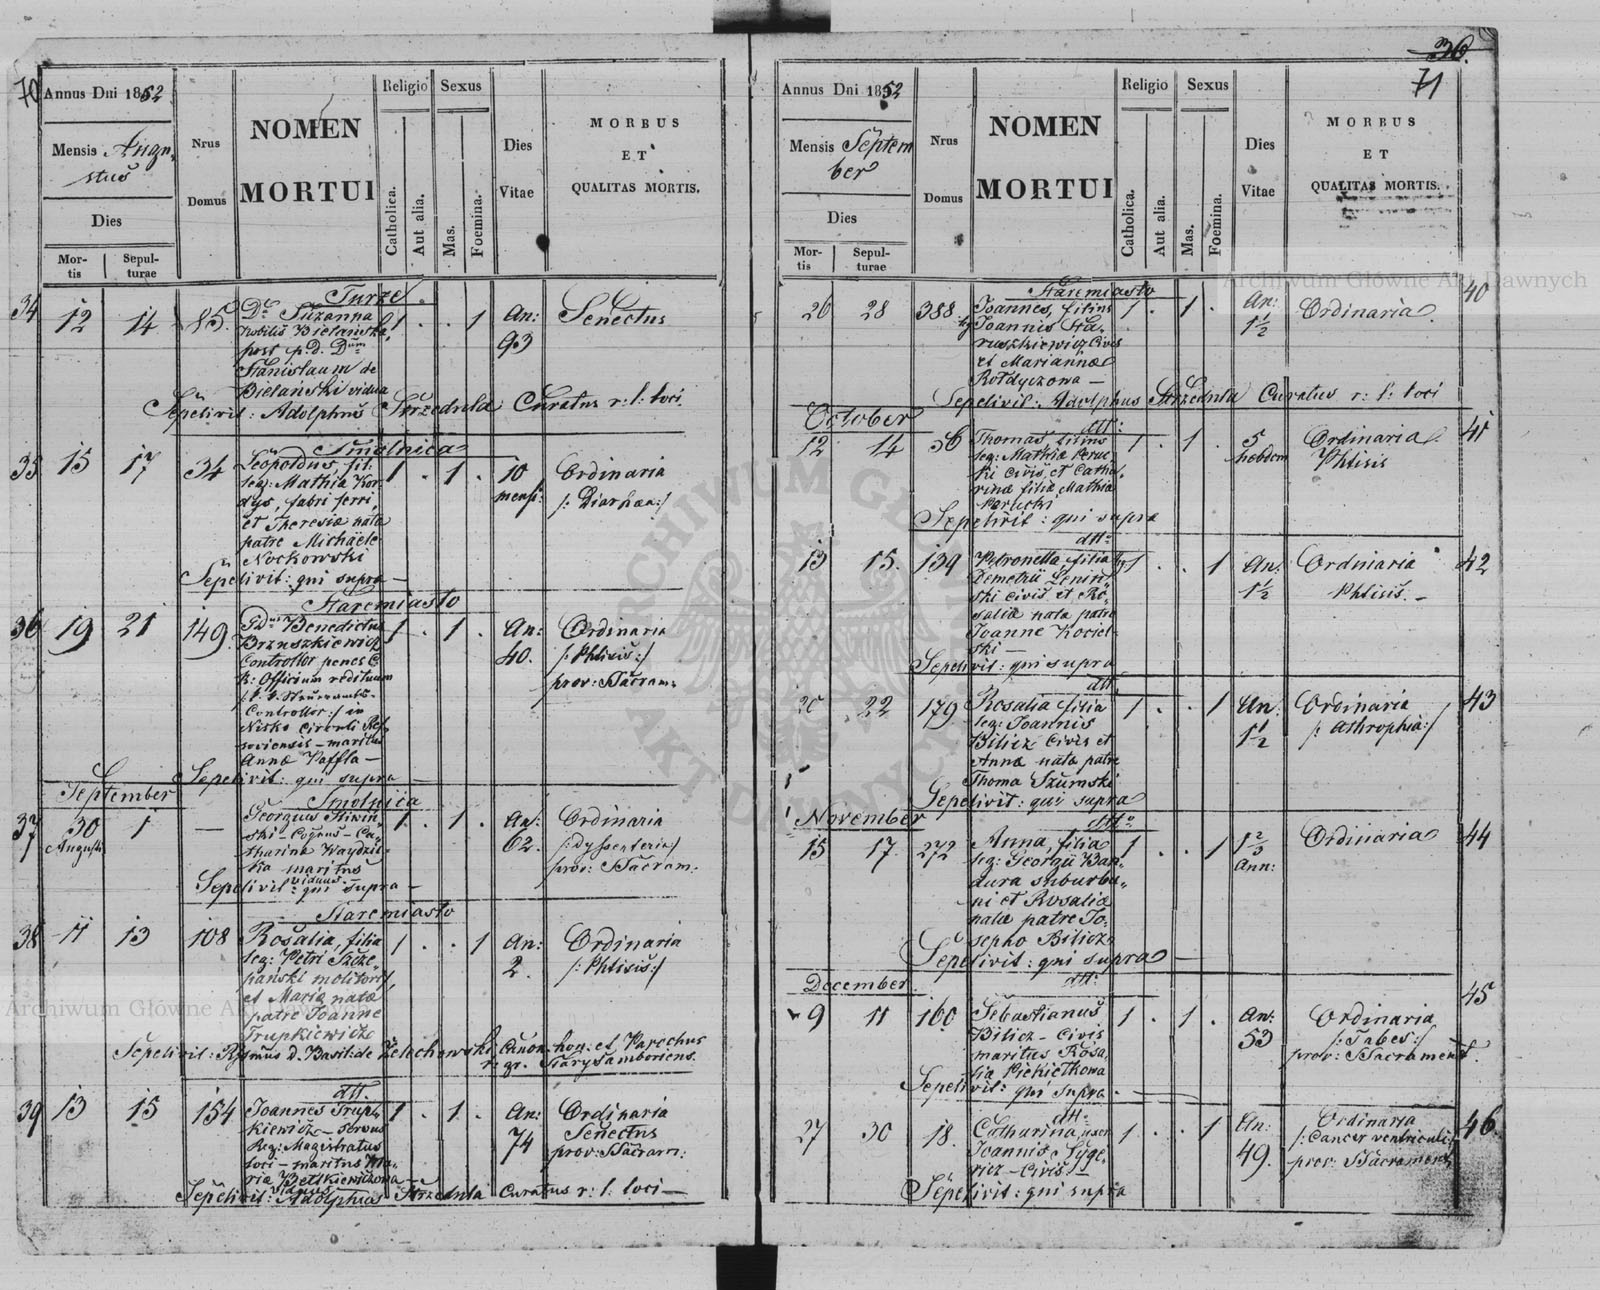 70
Annus Dni 1852
Mensis Augu-
stus
Dies
Mor-
tis
Sepul-
turae
Nrus
Domus
NOMEN
MORTUI
Religio
Catholica.
Aut alia.
Sexus
Mas.
Foemina.
Dies
Vitae
MORBUS
ET
QUALITAS MORTIS.
Turze
34 12 14 85 Da Suzanna 1 . . 1 An: Senectus
nobilis Bielańska, 93
post p.d. Dum
Stanislaum de
Bielański vidua
Sepelivit: Adolphus Strzednla Curatus r: l: loci
Smolnica
35 15 17 34 Leopoldus, fil. 1 . 1 . 10 Ordinaria
leg: Mathia Kor- mens: /: Diarhaea:/
dys, fabri ferri,
et Theresiæ nata
patre Michäele
Nockowski
Sepelivit: qui supra —
Staremiasto
36 19 21 149 Gd: Benedictus 1 . 1 . An: Ordinaria
Brzuszkiewicz 40. /: Phtisis:/
Controllor penes C. prov: SSacram:
k: Officium redituum
Controllor:/ in
Nisko Circuli Rze-
soviensis – maritus
Annæ Paffla —
Sepelivit: qui supra —
September
Smolnica
37 30 1 — Georgius 1 . 1 . An: Ordinaria
Augusti 62. /: dyssenteria:/
tharina Waydzil- prov: SSacram:
ka maritus
viduus. —
Sepelivit: qui supra —
Staremiasto
38 11 13 108 Rosalia, filia 1 . . 1 An: Ordinaria
leg: Petri Szcze 2. /: Phtisis:/
pański molitoris,
et Maria nata
patre Joanne
Trupkiewicz
Sepelivit: Rssmus d. Basil: de Żelechowski Canon: hon: et Parochus
r: gr. Starysamboriens.
dtt.
39 13 15 154 Joannes Trup- 1 . 1 . An: Ordinaria
kiewicz – servus 74 Senectus
Reg: Magistratus prov: SSacram:
loci – maritus Ma-
ria Betlkiewiczowa
viduus
Sepelivit: Adolphus Strzednla Curatus r: l: loci —
36.
71
Annus Dni 1852
Mensis Septem
ber
Dies
Mor-
tis
Sepul-
turae
Nrus
Domus
NOMEN
MORTUI
Religio
Catholica.
Aut alia.
Sexus
Mas.
Foemina.
Dies
Vitae
MORBUS
ET
QUALITAS MORTIS.
Staremiasto
26 28 388 Joannes, filius 1 . 1 . An: Ordinaria. 40
Joannis Sta- 1½
ruszkiewicz Civis
et Mariannæ
Rotdyczowa —
Sepelivit: Adolphus Strzednla Curatus r: l: loci
October
dtt:
12 14 36 Thomas, filius 1 . 1 . 5 Ordinaria. 41
leg: Mathia Peruc hebdom Phtisis
ki Civis, et Catha-
rinæ filia Mathia
Perucki
Sepelivit: qui supra
dtt:
13 15 139 Petronella filia 1 . . 1 An: Ordinaria 42
Demetrii Leniń- 1½ Phtisis. —
ski Civis et Ro-
salia nata patre
Joanne Kociel-
ski —
Sepelivit: qui supra
dtt.
20 22 179 Rosalia filia 1 . . 1 An: Ordinaria 43
leg: Joannis 1½ /: Athrophia:/
Bilicz Civis et
Annæ nata patre
Thoma Szumski
Sepelivit: qui supra
November
dtto
15 17 272 Anna, filia 1 . . 1 1⅔ Ordinaria 44
leg: Georgii Ban- Ann:
dura suburba-
ni et Rosalia
nata patre Jo-
sepho Bilicz
Sepelivit: qui supra —
December
dtt:
9 11 160 Sebastianus 1 . 1 . An: Ordinaria 45
Bilicz – Civis 53 /: Tabes:/
maritus Rosa- prov: SSacrament.
lia Piekiełkowa
Sepelivit: qui supra —
dtt:
27 30 18. Catharina, uxor 1 . . 1 An: Ordinaria 46
Joannis Syge- 49. /: Cancer ventriculi:/
ricz – Civis — prov: SSacrament.
Sepelivit: qui supra
Archiwum Główne Akt Dawnych
Archiwum Główne Akt Dawnych
ARCHIWUM GŁÓWNE AKT DAWNYCH